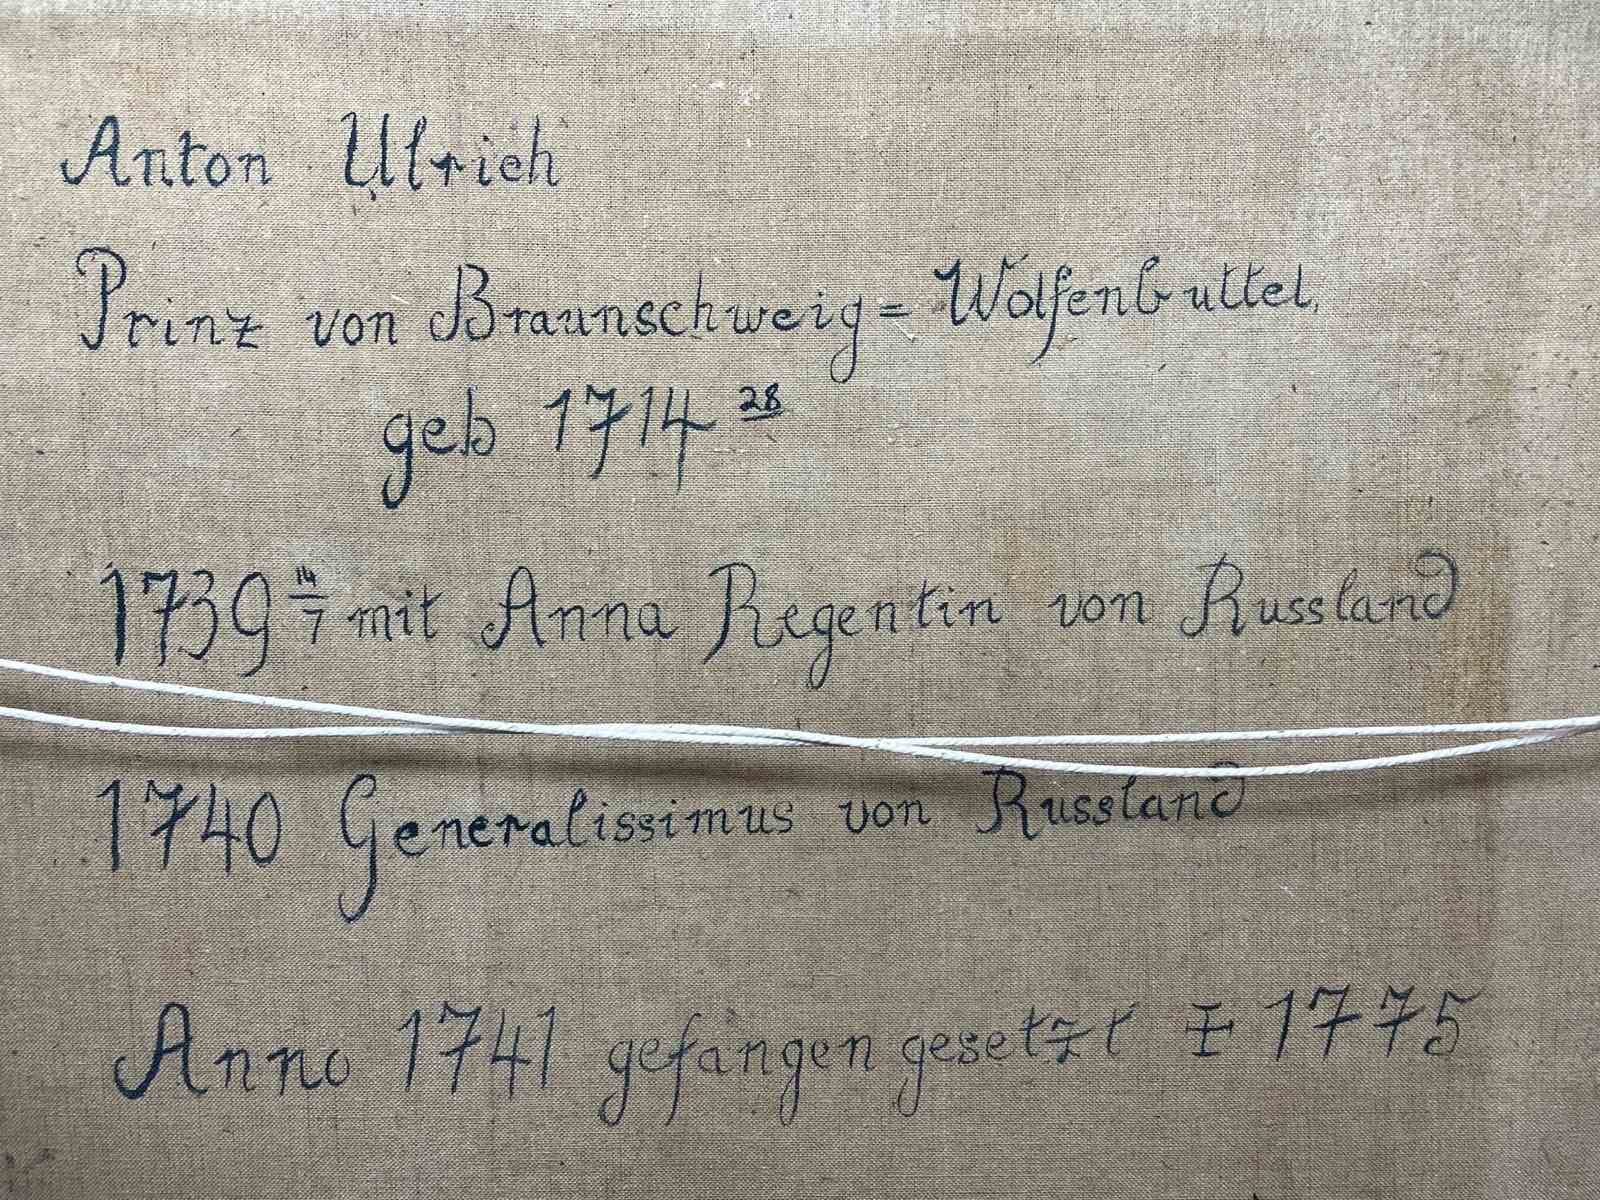 Anton Ulrich
Prinz von Braunschweig= Wolfenbuttel,
geb 1714 28
1739 14/7 mit Anna Regentin von Russland
1740 Generalissimus von Russland
Anno 1741 gefangen gesetzt ‡ 1775